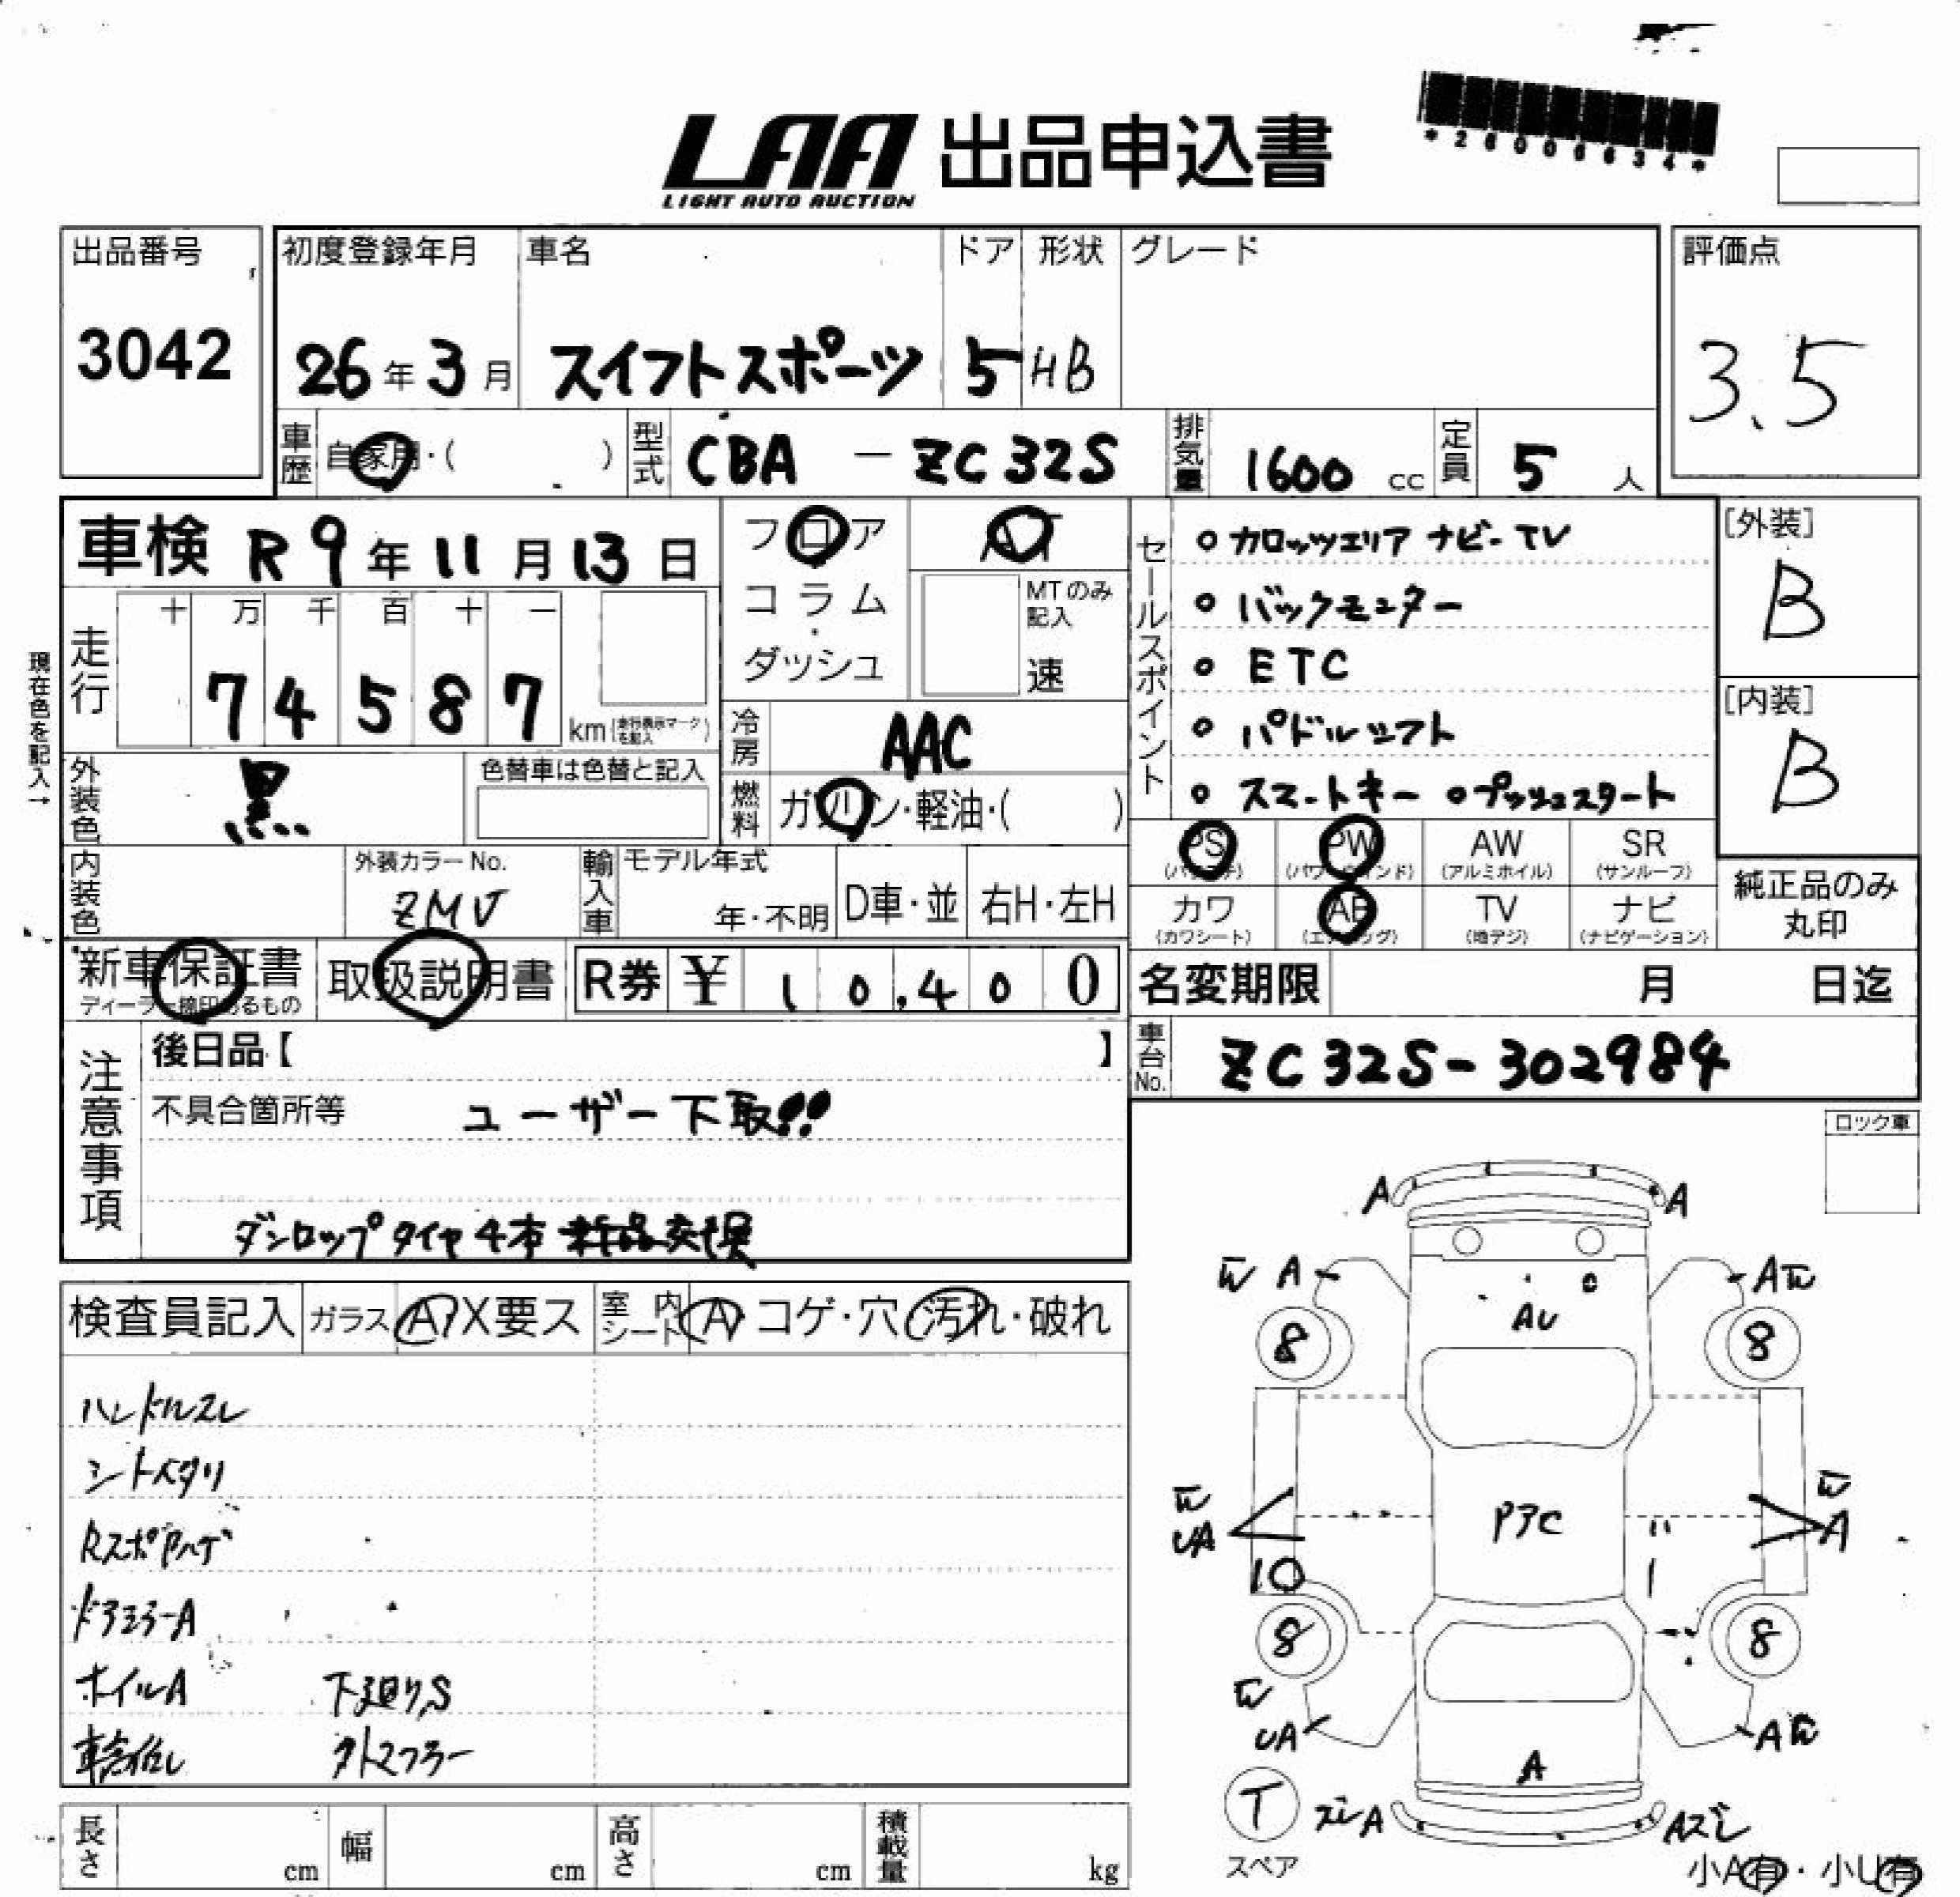 LAA 出品申込書
LIGHT AUTO AUCTION
*26006634*
出品番号
3042
初度登録年月 車名 ドア 形状 グレード
26年3月 スイフトスポーツ 5 HB
評価点
3.5
車歴 自家用・( ) 型式 CBA-ZC32S 排気量 1600cc 定員 5人
車検 R9年11月13日
フロア AT
コラム・ダッシュ
MTのみ記入
速
走行 十万千百十一
74587
km(走行表示マークを記入)
現在色を記入→
外装色 黒 色替車は色替と記入
冷房 AAC
燃料 ガソリン・軽油・( )
内装色 外装カラーNo. ZMV
輸入車 モデル年式 年・不明 D車・並 右H・左H
セールスポイント
○カロッツエリアナビーTV
○バックモニター
○ETC
○パドルシフト
○スマートキー ○プッシュスタート
[外装]
B
[内装]
B
PS PW(パワーウインド) AW(アルミホイル) SR(サンルーフ)
カワ(カワシート) AB(エアバッグ) TV(地デジ) ナビ(ナビゲーション)
純正品のみ丸印
新車保証書 取扱説明書 R券 ¥ 10,400
ディーラー検印あるもの
名変期限 月 日迄
車台No. ZC32S-302984
注意事項
後日品【 】
不具合箇所等 ユーザー下取!!
ダンロップタイヤ4本
検査員記入 ガラス A・X要ス 室内シート A・コゲ・穴・汚れ・破れ
ハンドルスレ
シートヘタリ
Rスポイラハゲ
ドアミラーA
ホイルA 下廻りS
車高低し 外マフラー
ロック車
A A
W A A W
8 AU 8
W W
UA PアC A
10
8 8
W
UA A W
A
T ズレA Aズレ
スペア
小A有・小U有
長さ cm 幅 cm 高さ cm 積載量 kg